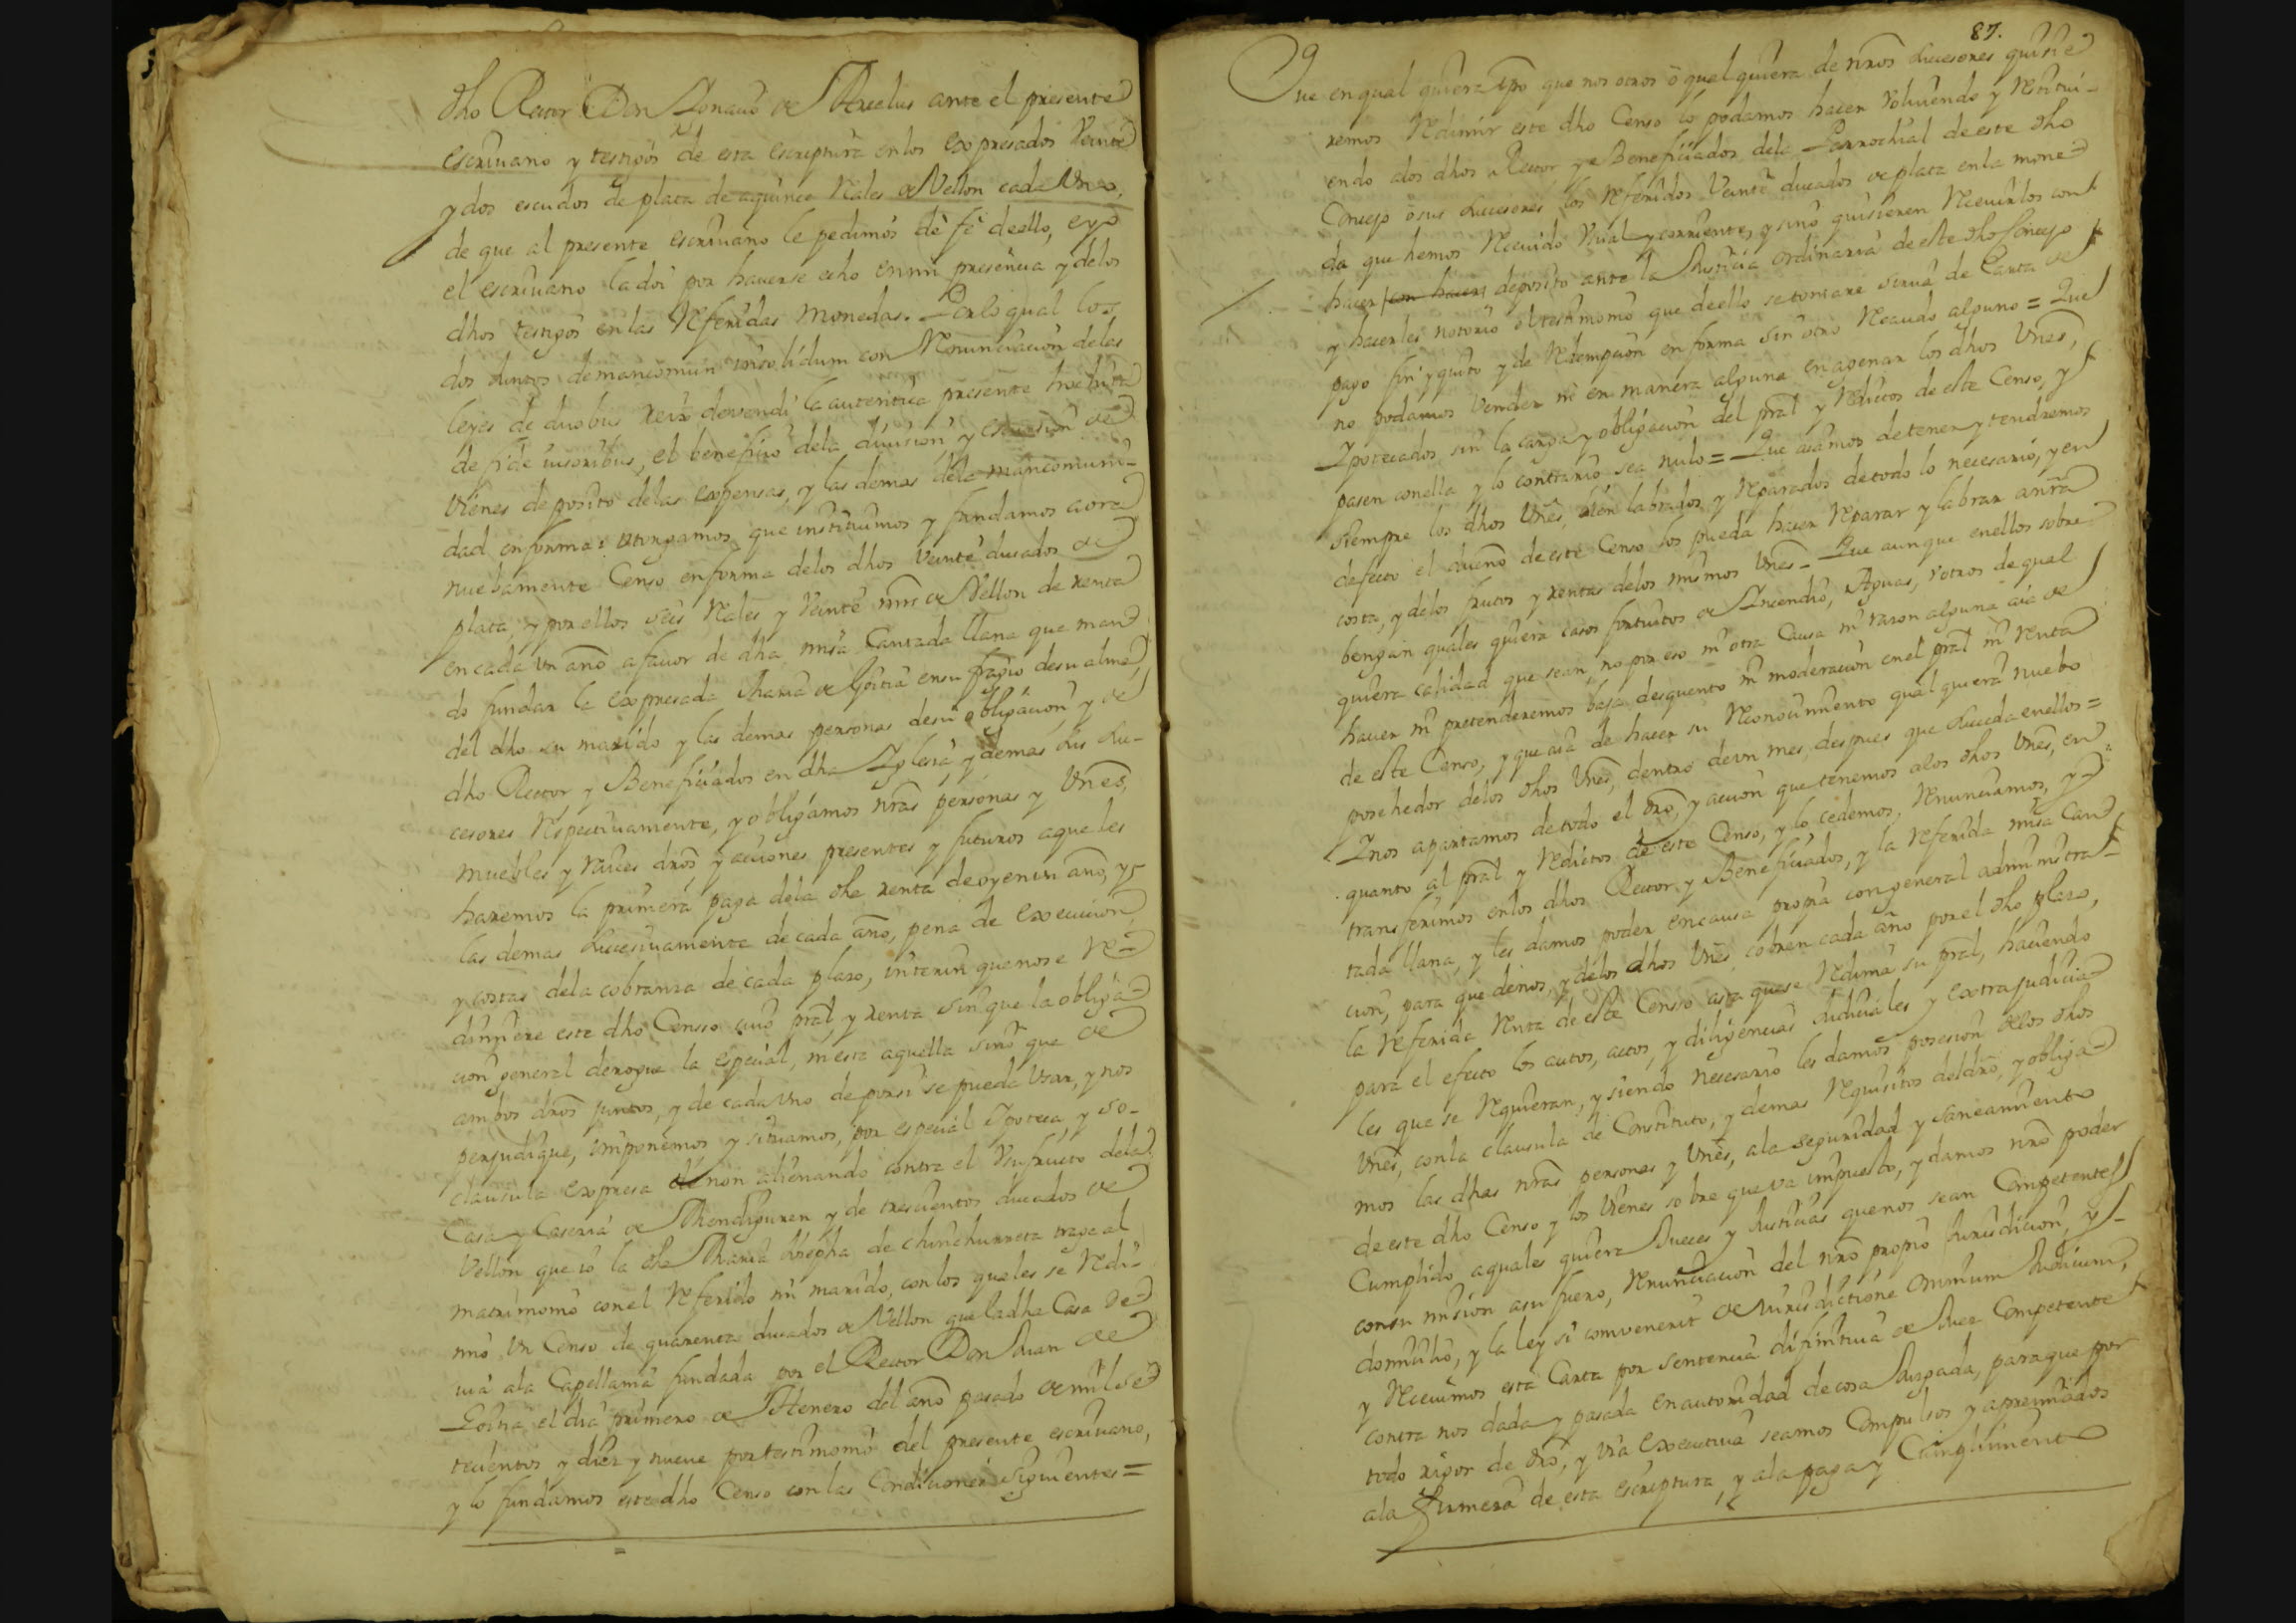 dho Rector Don Ignacio de Arcelus ante el presente
escriuano y testigos de esta escriptura en los expresados Veinte
y dos escudos de plata de aquince Reales de Vellon cada Vno,
de que al presente escriuano le pedimos dè fè de ello, e yo
el escriuano la doi por hauerse echo en mi presencia y delos
dhos testigos en las Referidas monedas. Por lo qual los
dos Juntos de mancomun insolidum con Renunciacion delas
leyes de duobus rex devendi la autentica presente hoc hitta
de fide iusoribus, el beneficio dela diuision y escursion de
Vienes deposito delas expensas, y las demas dela mancomuni-
dad en forma: otorgamos que instituimos y fundamos aora
nuebamente Censo en forma delos dhos Veinte ducados de
plata, y por ellos seis Reales y Veinte mrs de Vellon de renta
en cada vn año afauor de dha misa Cantada llana que man
do fundar la expresada Maria de Goitia en su fragio desu alma,
del dho su marido y las demas personas desu obligacion y de
dho Rector y Beneficiados en dha Yglesia y demas sus su-
cesores Respectiuamente, y obligamos nras personas y Vnes,
muebles y raices dros, y acciones presentes y futuros aque les
haremos la primera paga dela dha renta de oy en un año, y
las demas succesiuamente de cada año, pena de execucion,
y costas dela cobranza de cada plazo, interin que no se Re-
dimiere este dho Censso cuio pral, y renta sin que la obliga-
cion general derogue la especial, ni esta aquella sino que de
ambos dros juntos, y de cada vno de porsi se pueda Vsar, y nos
perjudique, imponemos y situamos, por especial Ypoteca, y so-
clausula expresa de non alienando contra el Vsufructo dela
Casa y Caseria de Mendiguren y de trescientos ducados de
Vellon que io la dha Maria Josepha de Chinchurreta traje al
matrimonio con el Referido mi marido, con los quales se Redi-
mio Vn Censo de quarenta ducados de Vellon que la dha Casa de
uia ala Capellania fundada por el Rector Don Juan de
Goitia el dia primero de Henero del año pasado de mil se
tecientos y diez y nueue por testimonio del presente escriuano,
y lo fundamos este dho Censo con las Condiciones siguientes =
87.
Que en qual quiera tpo que nos otros ò qual quiera de nros succesores quisie
remos Redimir este dho Censo lo podamos hacer Voluiendo y Restitui-
endo alos dhos Rector y Beneficiados dela Parrochial de este dho
Concejo ò sus succesores los Referidos Veinte ducados de plata en la mone
da que hemos Receuido Vsual y corriente, y sino quisieren Receuirlos con
hacer con hacer deposito ante la Justicia ordinaria de este dho Concejo
y hacerles notorio el testimonio que de ello se tomare sirua de Carta de
pago fin y quito y de Redempcion en forma sin otro Recaudo alguno = Que
no podamos Vender ni en manera alguna enagenar los dhos Vnes,
Ypotecados sin la carga y obligacion del pral y Reditos de este Censo, y
pasen con ella y lo contrario sea nulo = Que aiamos de tener y tendremos
siempre los dhos Vnes, bien labrados y Reparados de todo lo necesario, y en
defecto el dueño de este Censo los pueda hacer Reparar y labrar anra
costa, y delos frutos y rentas delos mismos Vnes - Que aunque en ellos sobre
bengan quales quiera casos fortuitos de Incendio, Aguas, ù otros de qual
quiera calidad que sean, no por eso ni otra Causa ni razon alguna aia de
hauer ni pretenderemos baja desquento ni moderacion en el pral ni renta
de este Censo, y que aia de hacer su Reconocimiento qual quiera nuebo
posehedor delos dhos Vnes, dentro de vn mes, despues que suceda en ellos =
Y nos apartamos de todo el dro, y accion que tenemos alos dhos Vnes, en
quanto al pral y Reditos de este Censo, y lo cedemos, Renunciamos, y
transferimos en los dhos Rector y Beneficiados, y la referida misa Can
tada llana, y les damos poder en causa propia con general administra-
cion, para que denos, y delos dhos Vnes cobren cada año por el dho plazo,
la referida Renta de este Censo asta que se Redima su pral, haciendo
para el efecto los autos, actos, y diligencias Judiciales y extrajudicia
les que se Requieran, y siendo necesario les damos posesion delos dhos
Vnes, con la clausula de Constituto, y demas Requisitos del dro, y obliga-
mos las dhas nras personas y Vnes, ala seguridad y saneamiento
de este dho Censo y los Vienes sobre que va impuesto, y damos nro poder
Cumplido a quales quiera Jueces y Justicias que nos sean Competentes
con su mision asu fuero, Renunciacion del nro propio Jurisdicion, y
domicilio, y la ley si conuenerit de Jurisdictione omnium Judicum,
y Receuimos esta Carta por sentencia difinitiua de Juez Competente
contra nos dada y pasada en autoridad de cosa Juzgada, para que por
todo rigor de dro, y via executiua seamos Compulsos y apremiados
ala firmeza de esta escriptura, y ala paga y Cumplimiento